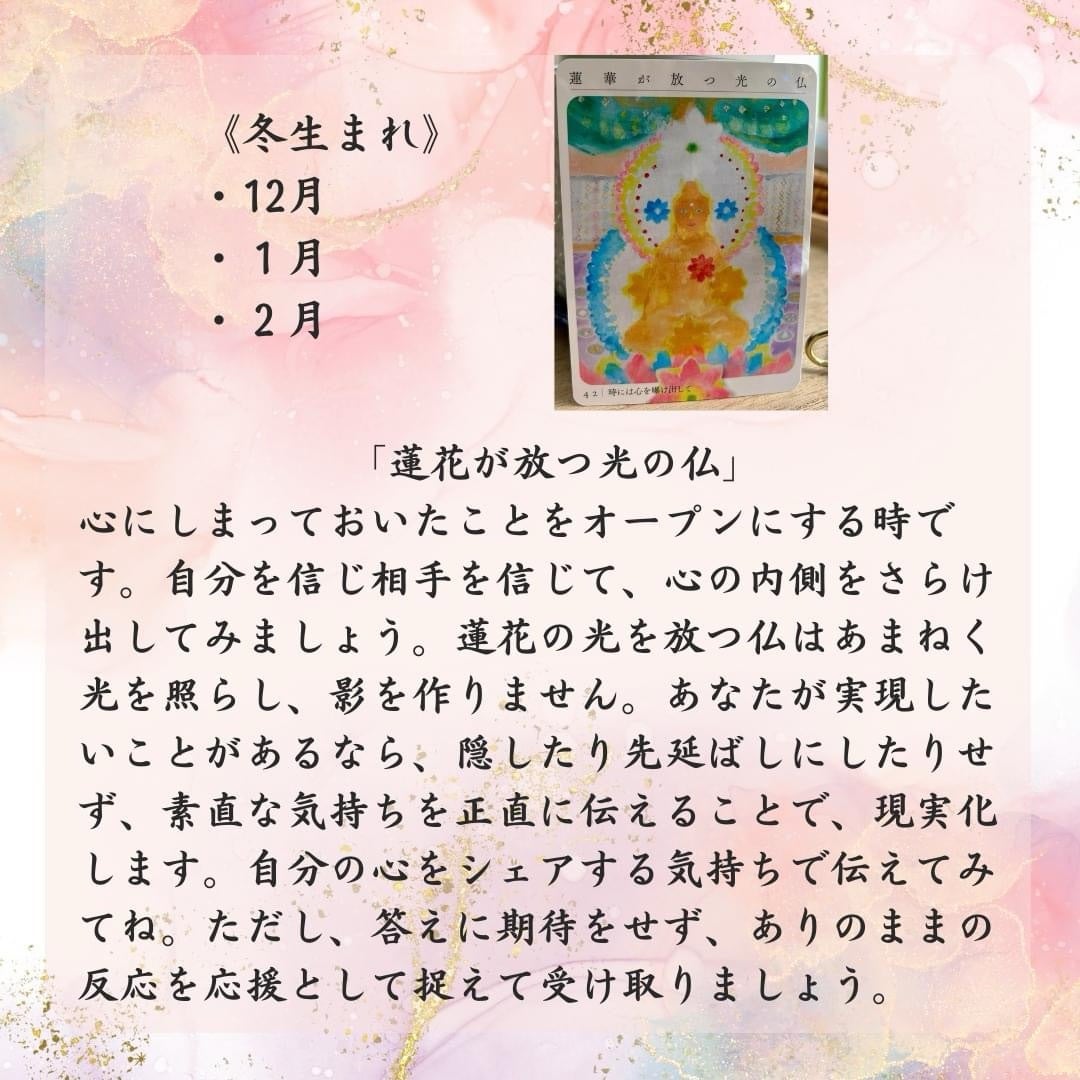 《冬生まれ》
・12月
・１月
・２月
蓮華が放つ光の仏
42｜時には心を曝け出して
「蓮花が放つ光の仏」
心にしまっておいたことをオープンにする時で
す。自分を信じ相手を信じて、心の内側をさらけ
出してみましょう。蓮花の光を放つ仏はあまねく
光を照らし、影を作りません。あなたが実現した
いことがあるなら、隠したり先延ばしにしたりせ
ず、素直な気持ちを正直に伝えることで、現実化
します。自分の心をシェアする気持ちで伝えてみ
てね。ただし、答えに期待をせず、ありのままの
反応を応援として捉えて受け取りましょう。